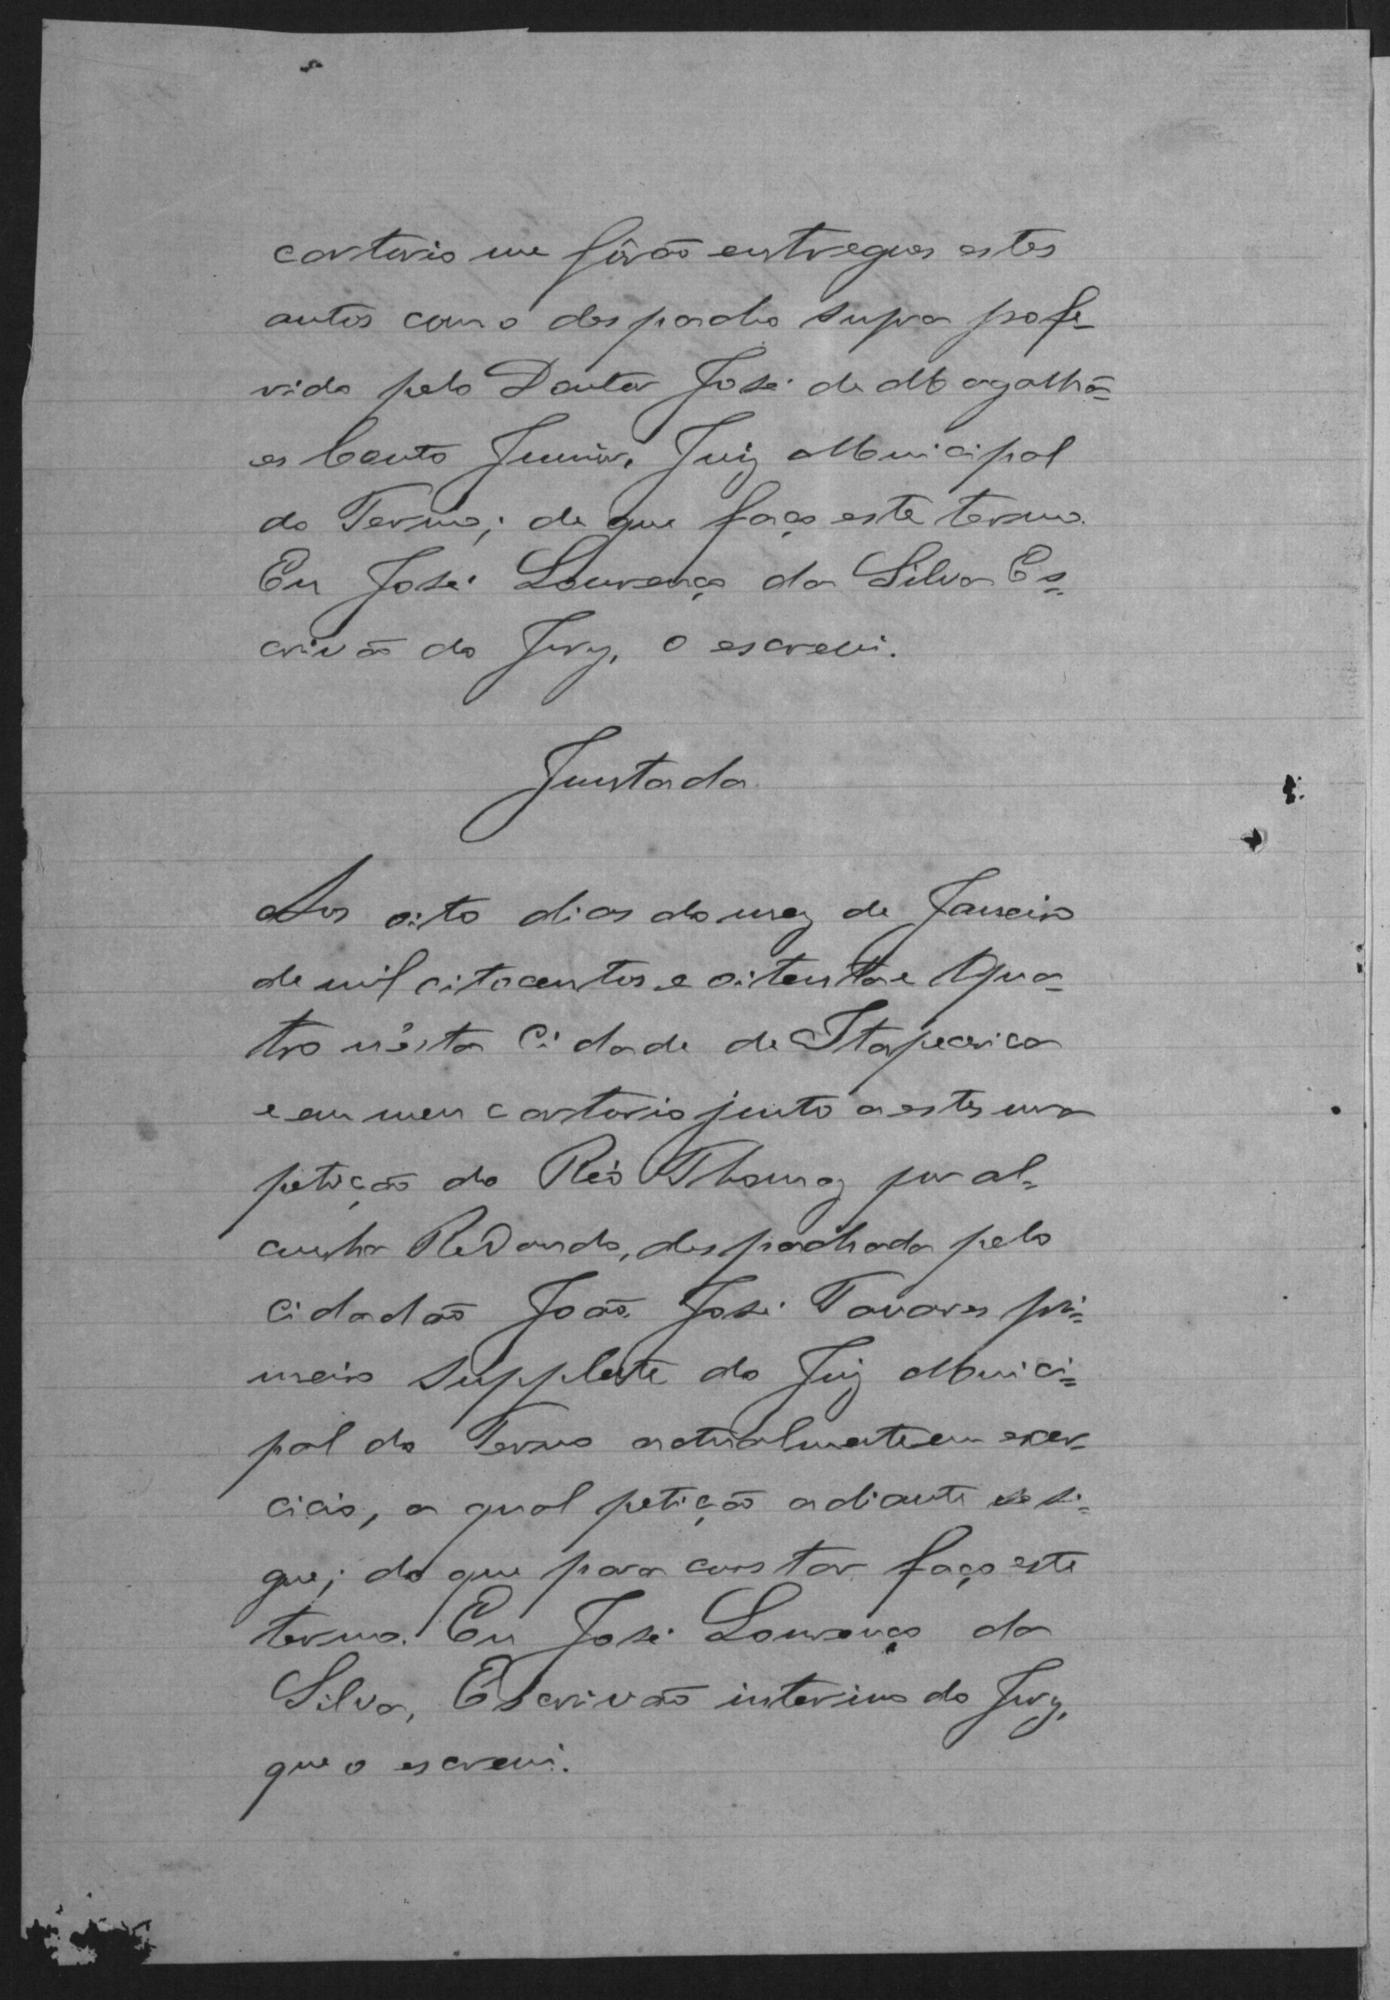 cartorio me fôrão entregues estes
autos com o despacho supra profe-
rido pelo Doutor José de Magalhã=
es Couto Junior, Juiz Municipal
do Termo; de que faço este termo.
Eu José Lourenço da Silva Es=
crivão do Jury, o escrevi.
Juntada
Aos oito dias do mez de Janeiro
de mil oitocentos e oitenta e qua=
tro n'ésta Cidade de Itapecerica
e em meu cartorio junto a estes uma
petição do Réo Thomaz por al=
cunha Redondo, despachada pelo
cidadão João José Tavares pri=
meiro supplente do Juiz Munici=
pal do Termo actualmente em exer-
cicio, a qual petição adiante se se=
gue; do que para constar faço este
termo. Eu José Lourenço da
Silva, Escrivão interino do Jury,
que o escrevi.